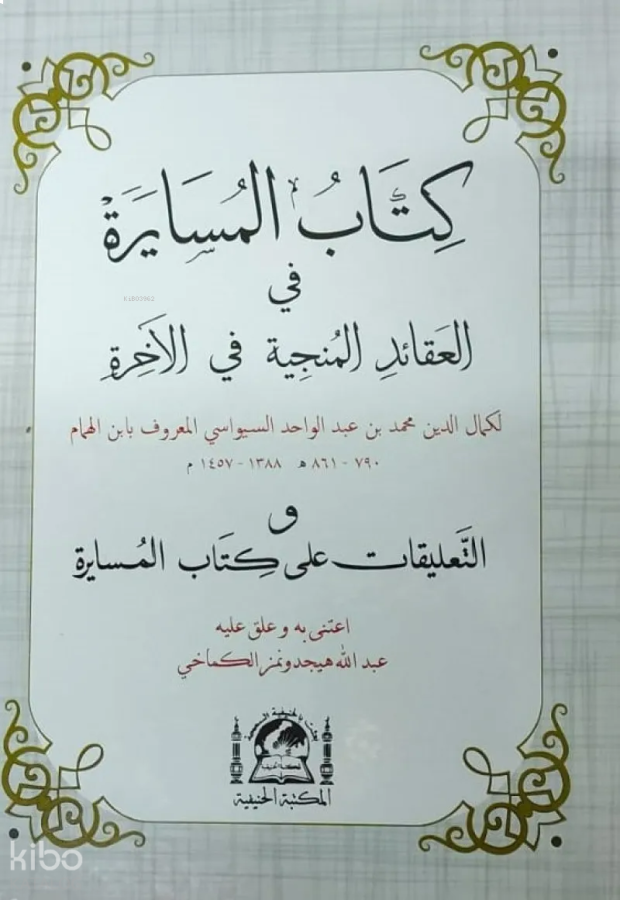 كِتَابُ المُسَايَرَة
في
العَقَائدِ المُنجِية في الآخِرةِ
لكمال الدين محمد بن عبد الواحد السيواسي المعروف بابن الهمام
٧٩٠ - ٨٦١ هـ ١٣٨٨ - ١٤٥٧ م
و
التَّعليقات على كِتَاب المُسايرة
اعتنى به وعلق عليه
عبد الله هيجدونمز الكماخي
المكتبة الحنيفية
kibo